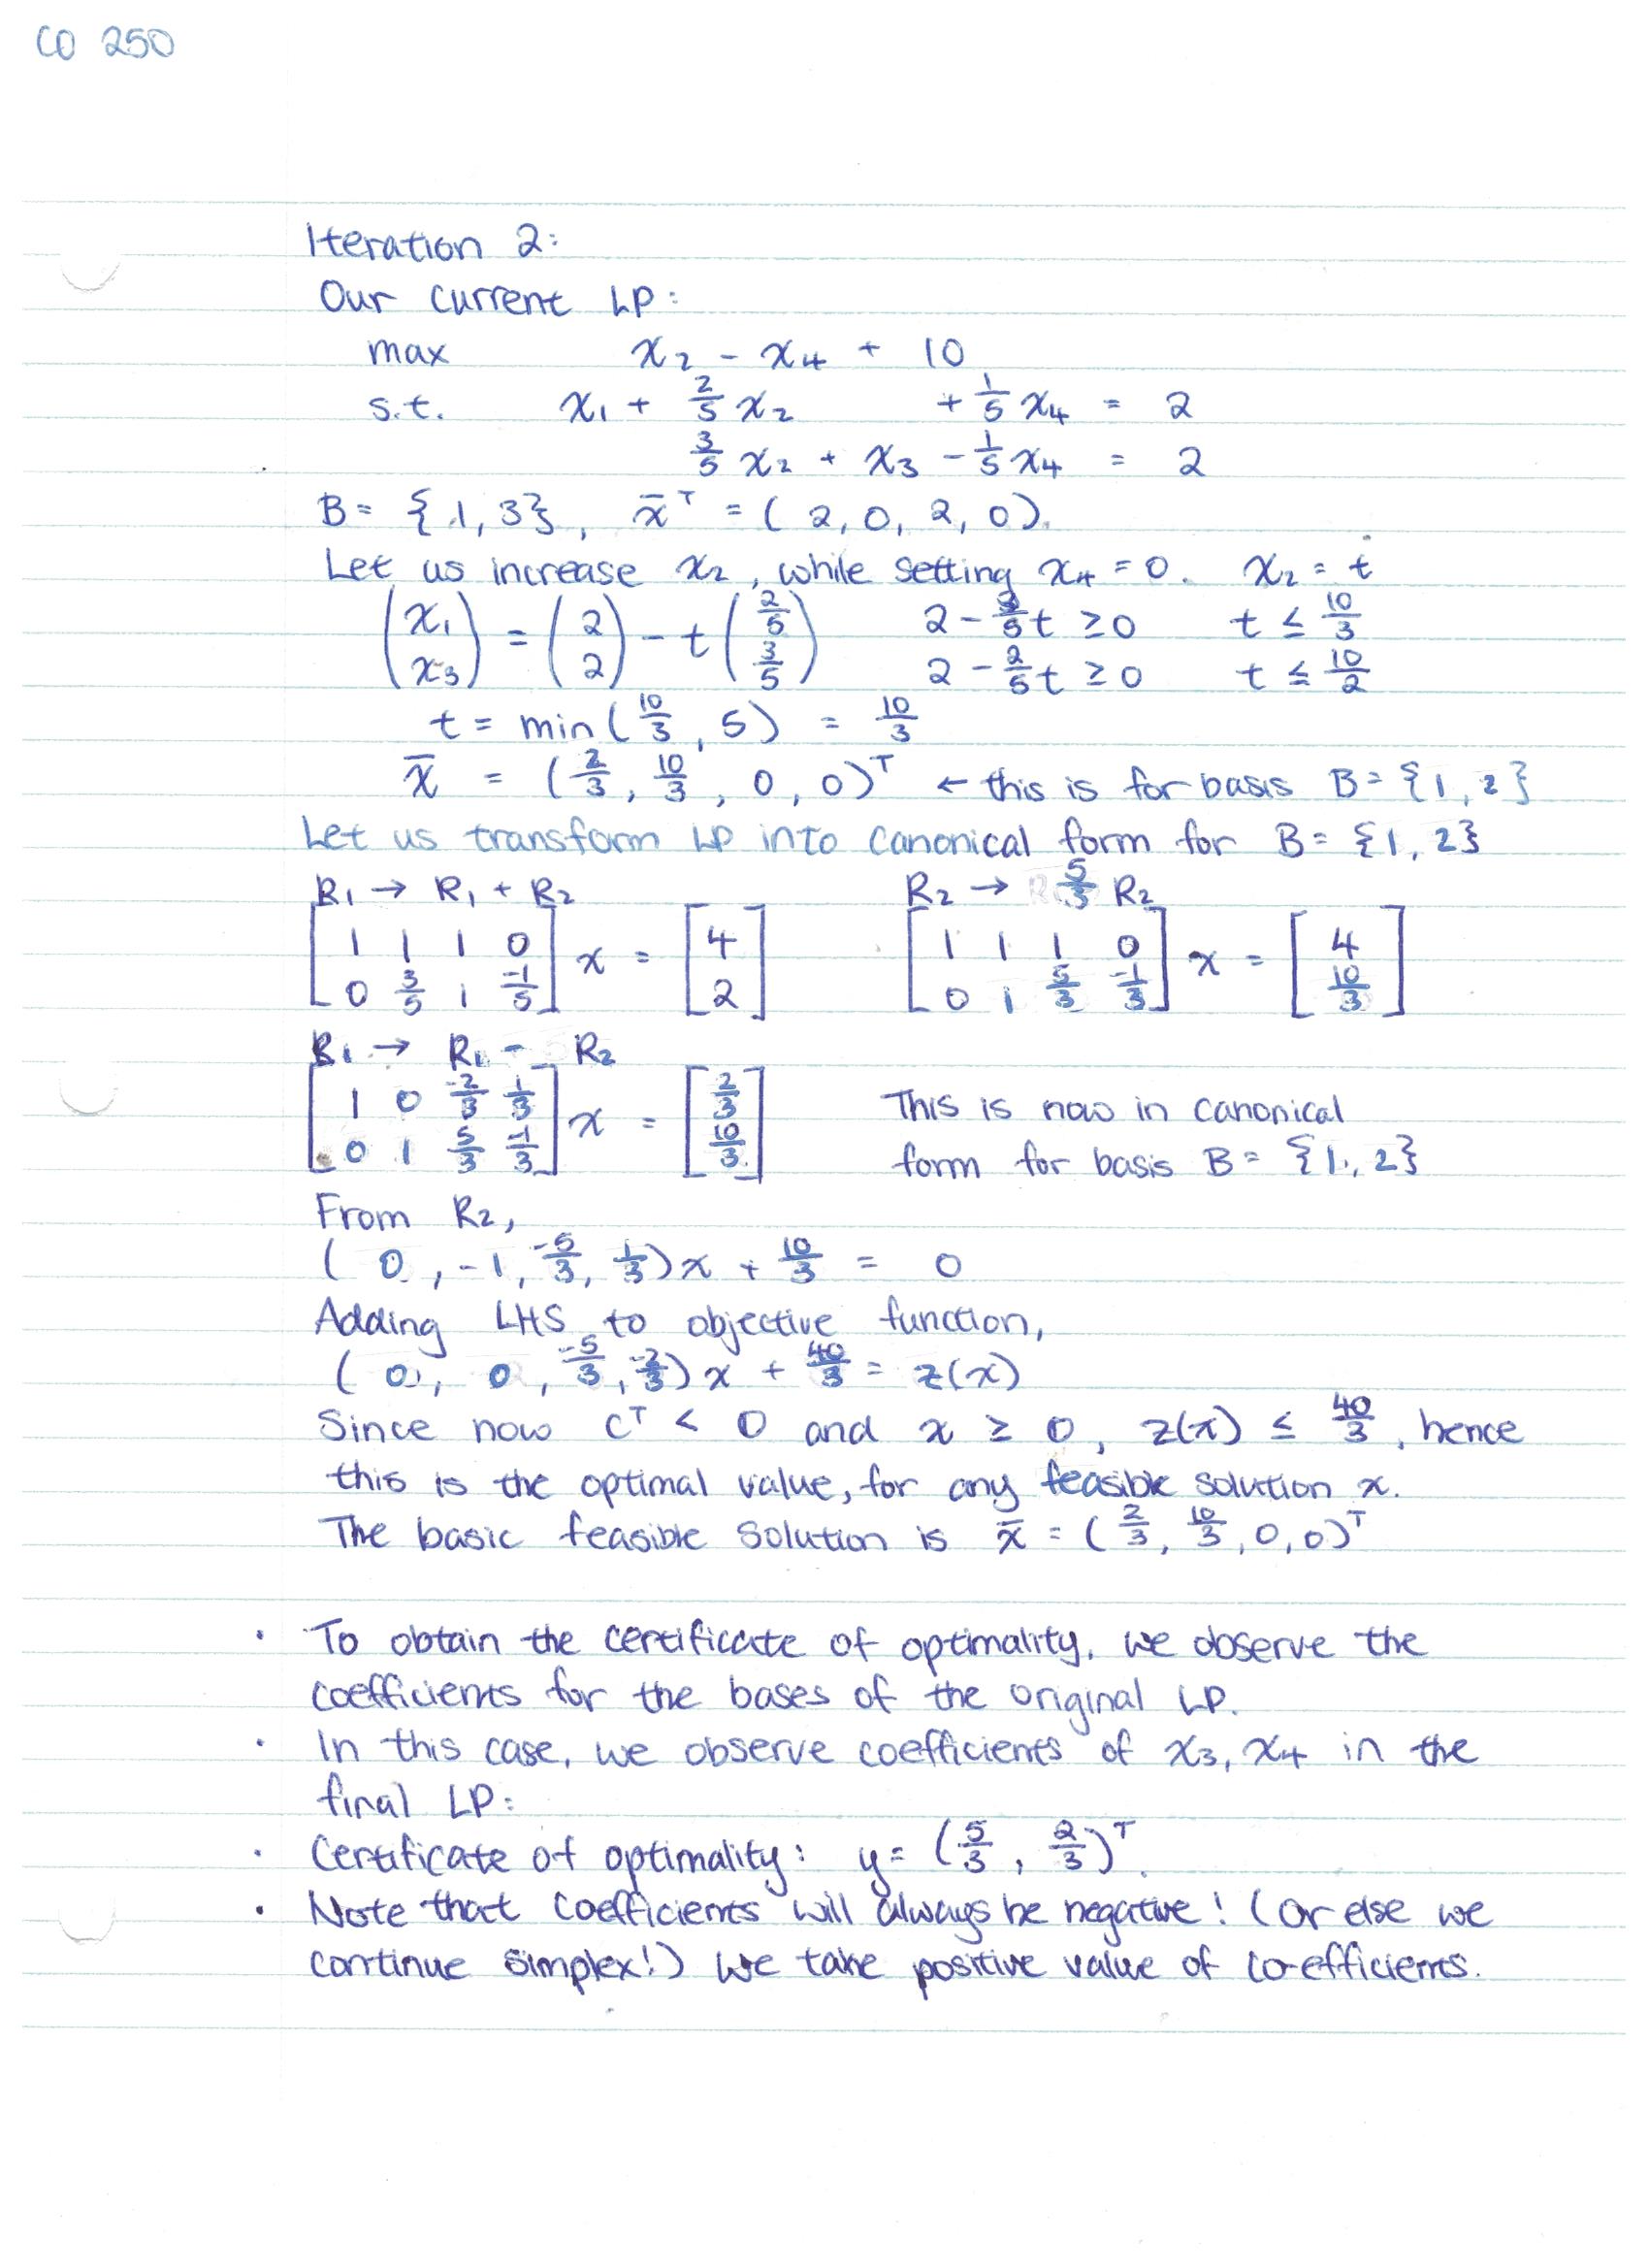 CO 250
Iteration 2:
Our current LP:
max x₂ - x₄ + 10
s.t. x₁ + 2/5 x₂ + 1/5 x₄ = 2
3/5 x₂ + x₃ - 1/5 x₄ = 2
B = {1, 3}, x̄ᵀ = (2, 0, 2, 0).
Let us increase x₂, while setting x₄ = 0. x₂ = t
(x₁ x₃) = (2 2) - t (2/5 3/5) 2 - 3/5 t ≥ 0 t ≤ 10/3
2 - 2/5 t ≥ 0 t ≤ 10/2
t = min(10/3, 5) = 10/3
x̄ = (2/3, 10/3, 0, 0)ᵀ ← this is for basis B = {1, 2}
Let us transform LP into canonical form for B = {1, 2}
R₁ → R₁ + R₂ R₂ → 5/3 R₂
[1 1 1 0] x = [4] [1 1 1 0] x = [4]
[0 3/5 1 -1/5] [2] [0 1 5/3 -1/3] [10/3]
R₁ → R₁ - R₂
[1 0 -2/3 1/3] x = [2/3] This is now in canonical
[0 1 5/3 -1/3] [10/3] form for basis B = {1, 2}
From R₂,
(0, -1, -5/3, 1/3)x + 10/3 = 0
Adding LHS to objective function,
(0, 0, -5/3, -2/3)x + 40/3 = z(x)
Since now cᵀ < 0 and x ≥ 0, z(x) ≤ 40/3, hence
this is the optimal value, for any feasible solution x.
The basic feasible solution is x̄ = (2/3, 10/3, 0, 0)ᵀ
· To obtain the certificate of optimality, we observe the
coefficients for the bases of the original LP.
· In this case, we observe coefficients of x₃, x₄ in the
final LP:
· Certificate of optimality: y = (5/3, 2/3)ᵀ.
· Note that coefficients will always be negative! (Or else we
continue simplex!) We take positive value of co-efficients.